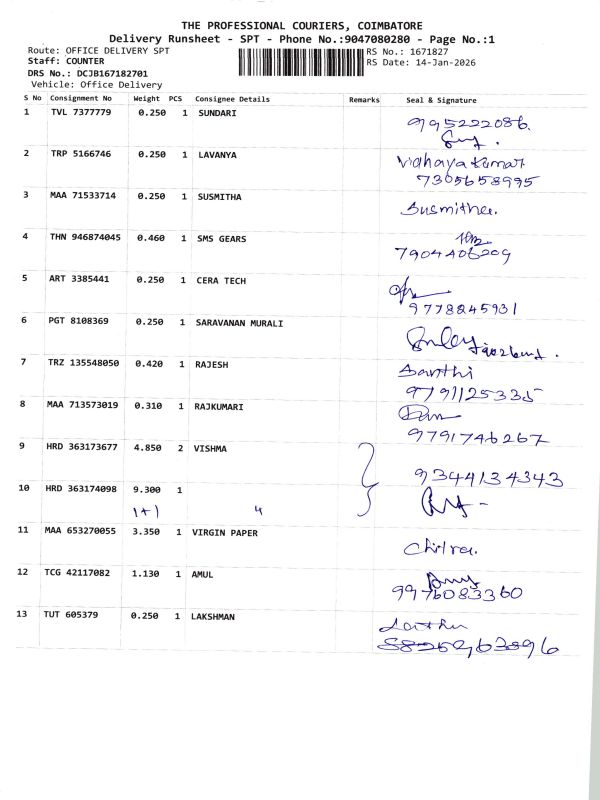 THE PROFESSIONAL COURIERS, COIMBATORE
Delivery Runsheet - SPT - Phone No.:9047080280 - Page No.:1
Route: OFFICE DELIVERY SPT RS No.: 1671827
Staff: COUNTER RS Date: 14-Jan-2026
DRS No.: DCJB167182701
Vehicle: Office Delivery
S No Consignment No Weight PCS Consignee Details Remarks Seal & Signature
1 TVL 7377779 0.250 1 SUNDARI 995222086.
2 TRP 5166746 0.250 1 LAVANYA Vidhaya Kumar
7305658995
3 MAA 71533714 0.250 1 SUSMITHA Susmitha.
4 THN 946874045 0.460 1 SMS GEARS
7904406209
5 ART 3385441 0.250 1 CERA TECH
9778245931
6 PGT 8108369 0.250 1 SARAVANAN MURALI
7 TRZ 135548050 0.420 1 RAJESH Santhi
9791125335
8 MAA 713573019 0.310 1 RAJKUMARI
9791746267
9 HRD 363173677 4.850 2 VISHMA 9344134343
10 HRD 363174098 9.300 1
1+1 4
11 MAA 653270055 3.350 1 VIRGIN PAPER Chitra.
12 TCG 42117082 1.130 1 AMUL
9976083360
13 TUT 605379 0.250 1 LAKSHMAN